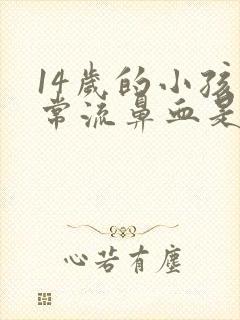 14歲的小孩
常流鼻血是
心若有塵